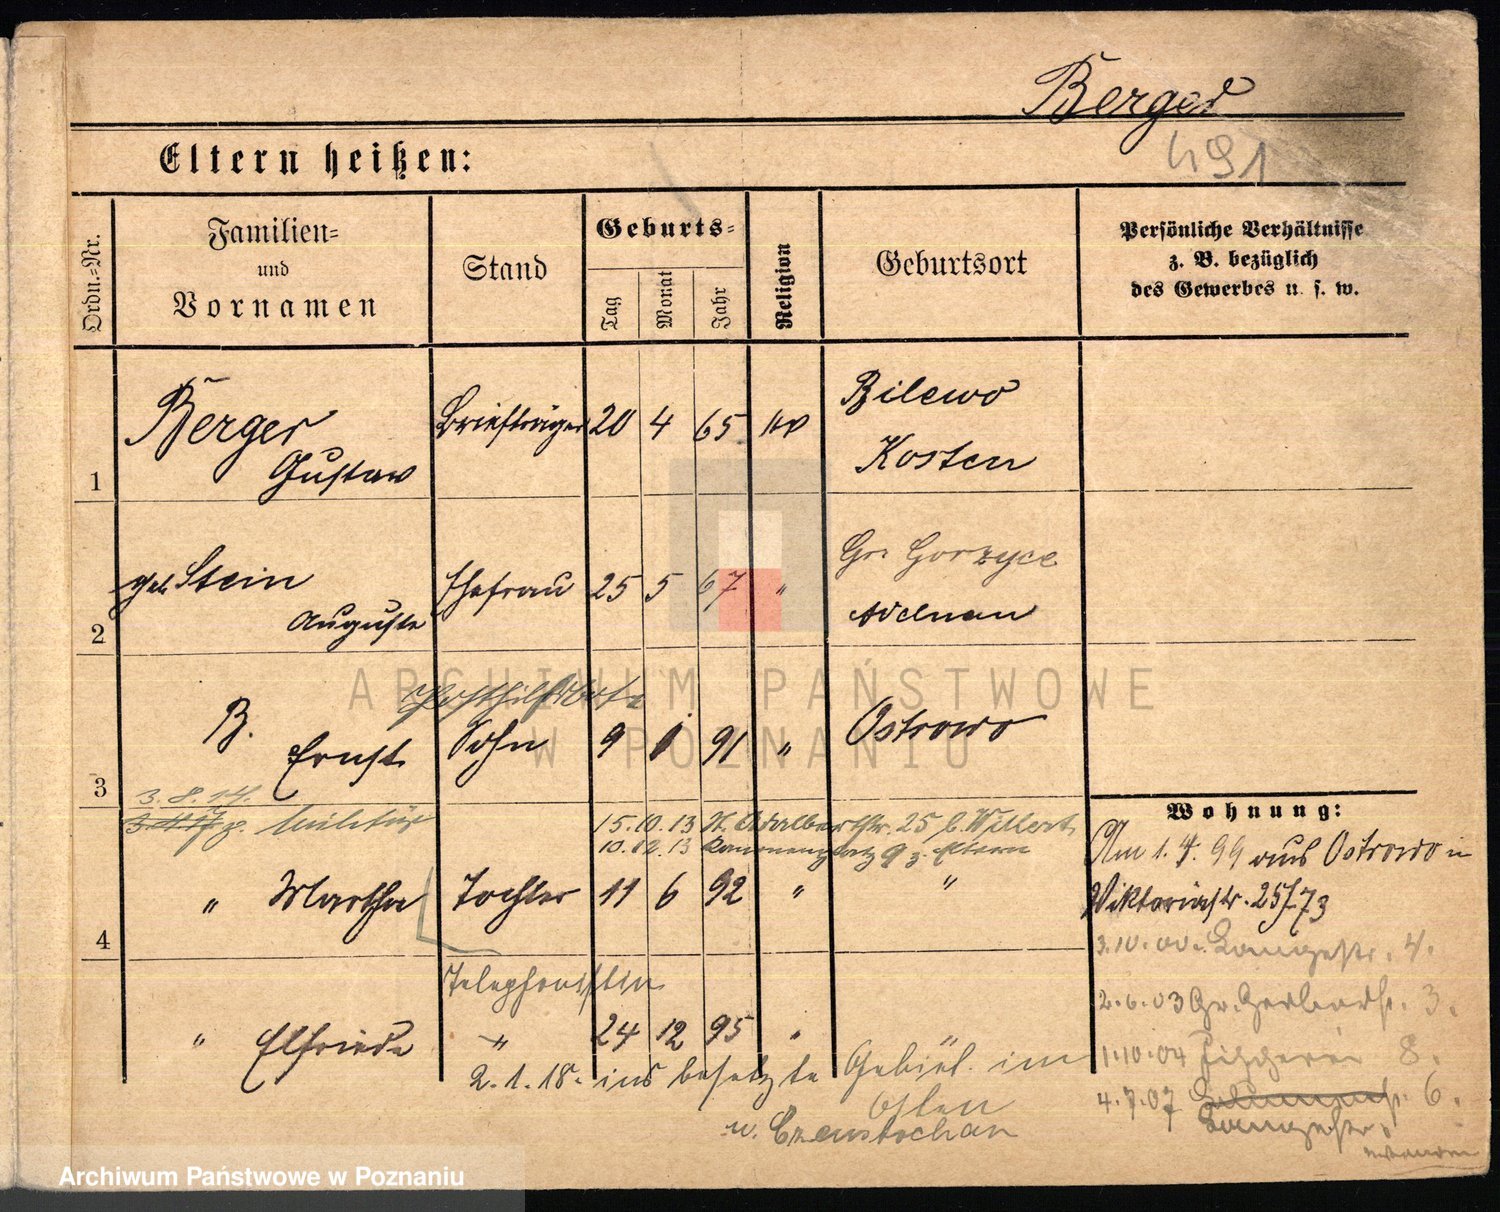 Berger
491
Eltern heißen:
Ordn.-Nr.
Familien-
und
Vornamen
Stand
Geburts-
Tag
Monat
Jahr
Religion
Geburtsort
Persönliche Verhältnisse
z. B. bezüglich
des Gewerbes u. s. w.
1
Berger
Gustav
Briefträger
20 4 65
ev
Bilewo
Kosten
2
geb. Stein
Auguste
Ehefrau
25 5 67
"
Gr. Gorzyce
Adelnau
3
B.
Ernst
Posthilfsbote
Sohn
9 1 91
"
Ostrowo
3.8.14.
z. Militär
15.10.13 St. Adalbertstr. 25 b. Willert
10.12.13 9 z. Eltern
4
" Martha
Tochter
11 6 92
"
"
" Elfriede
Telephonistin
"
24 12 95
"
2.1.18. ins besetzte Gebiet im
Osten
n. Czenstochau
Wohnung:
Am 1.4.99 aus Ostrowo in
Viktoriastr. 25/73
3.10.00. Langestr. 4.
2.6.03 Gr. Gerberstr. 3.
1.10.04 8.
4.7.07 6.
Langestr.
ARCHIWUM PAŃSTWOWE
W POZNANIU
Archiwum Państwowe w Poznaniu